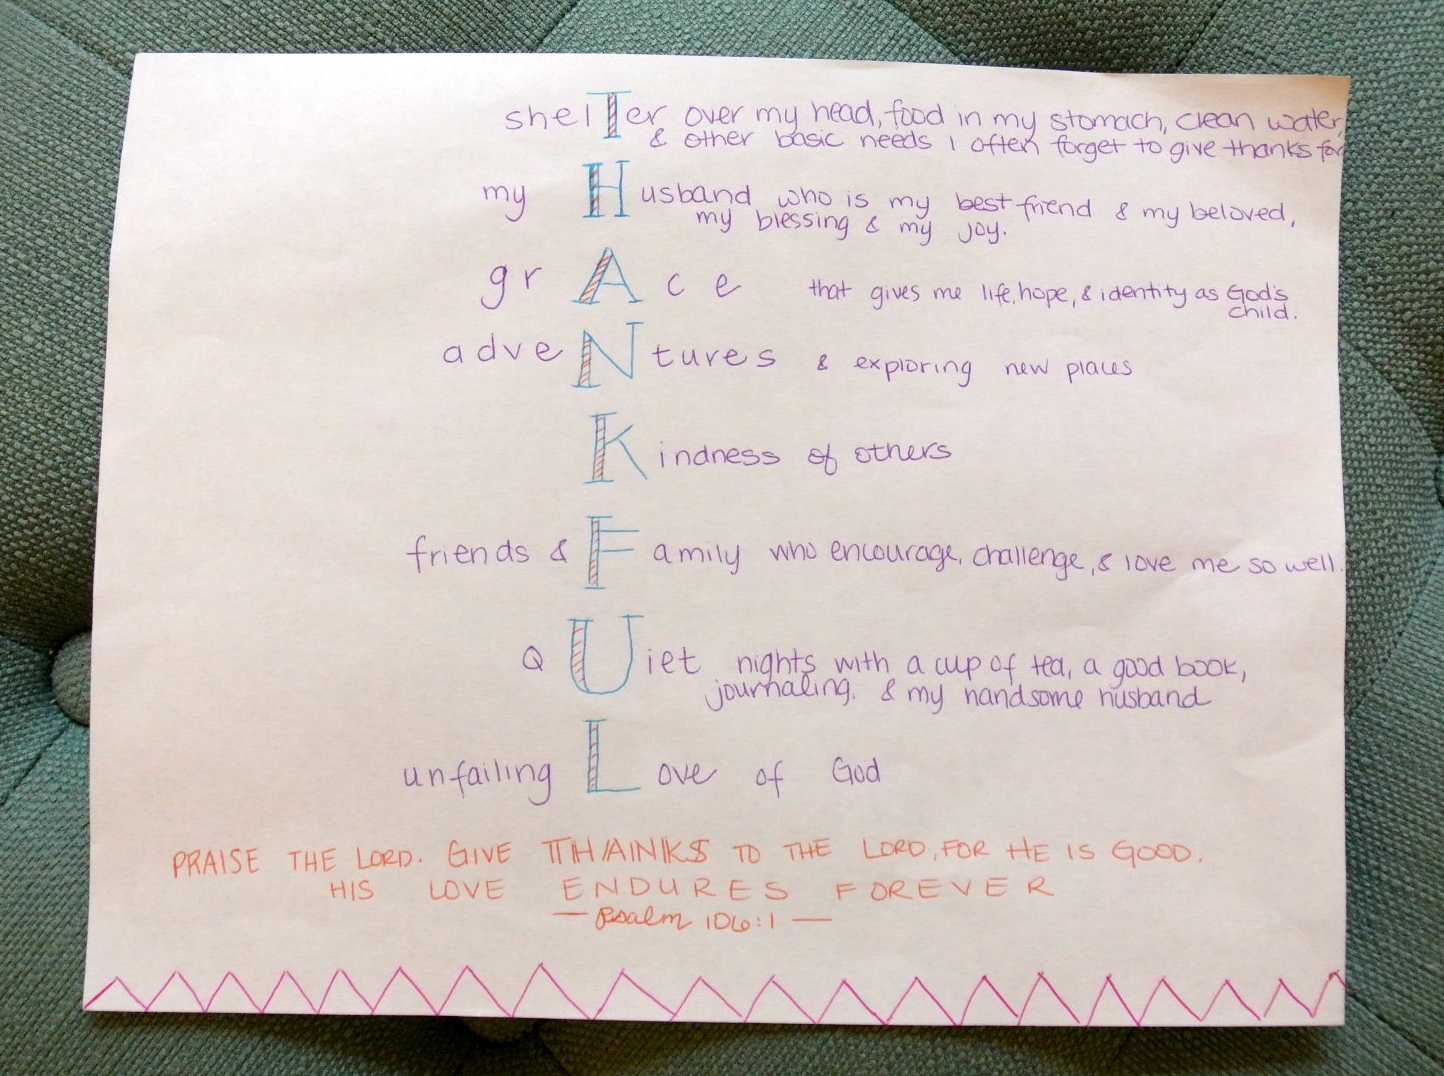 shelTer over my head, food in my stomach, clean water,
& other basic needs I often forget to give thanks for
my Husband who is my best friend & my beloved,
my blessing & my joy.
grAce that gives me life, hope, & identity as God's
child.
adveNtures & exploring new places
Kindness of others
friends & Family who encourage, challenge, & love me so well.
QUiet nights with a cup of tea, a good book,
journaling, & my handsome husband
unfailing Love of God
PRAISE THE LORD. GIVE THANKS TO THE LORD, FOR HE IS GOOD.
HIS LOVE ENDURES FOREVER
— Psalm 106:1 —